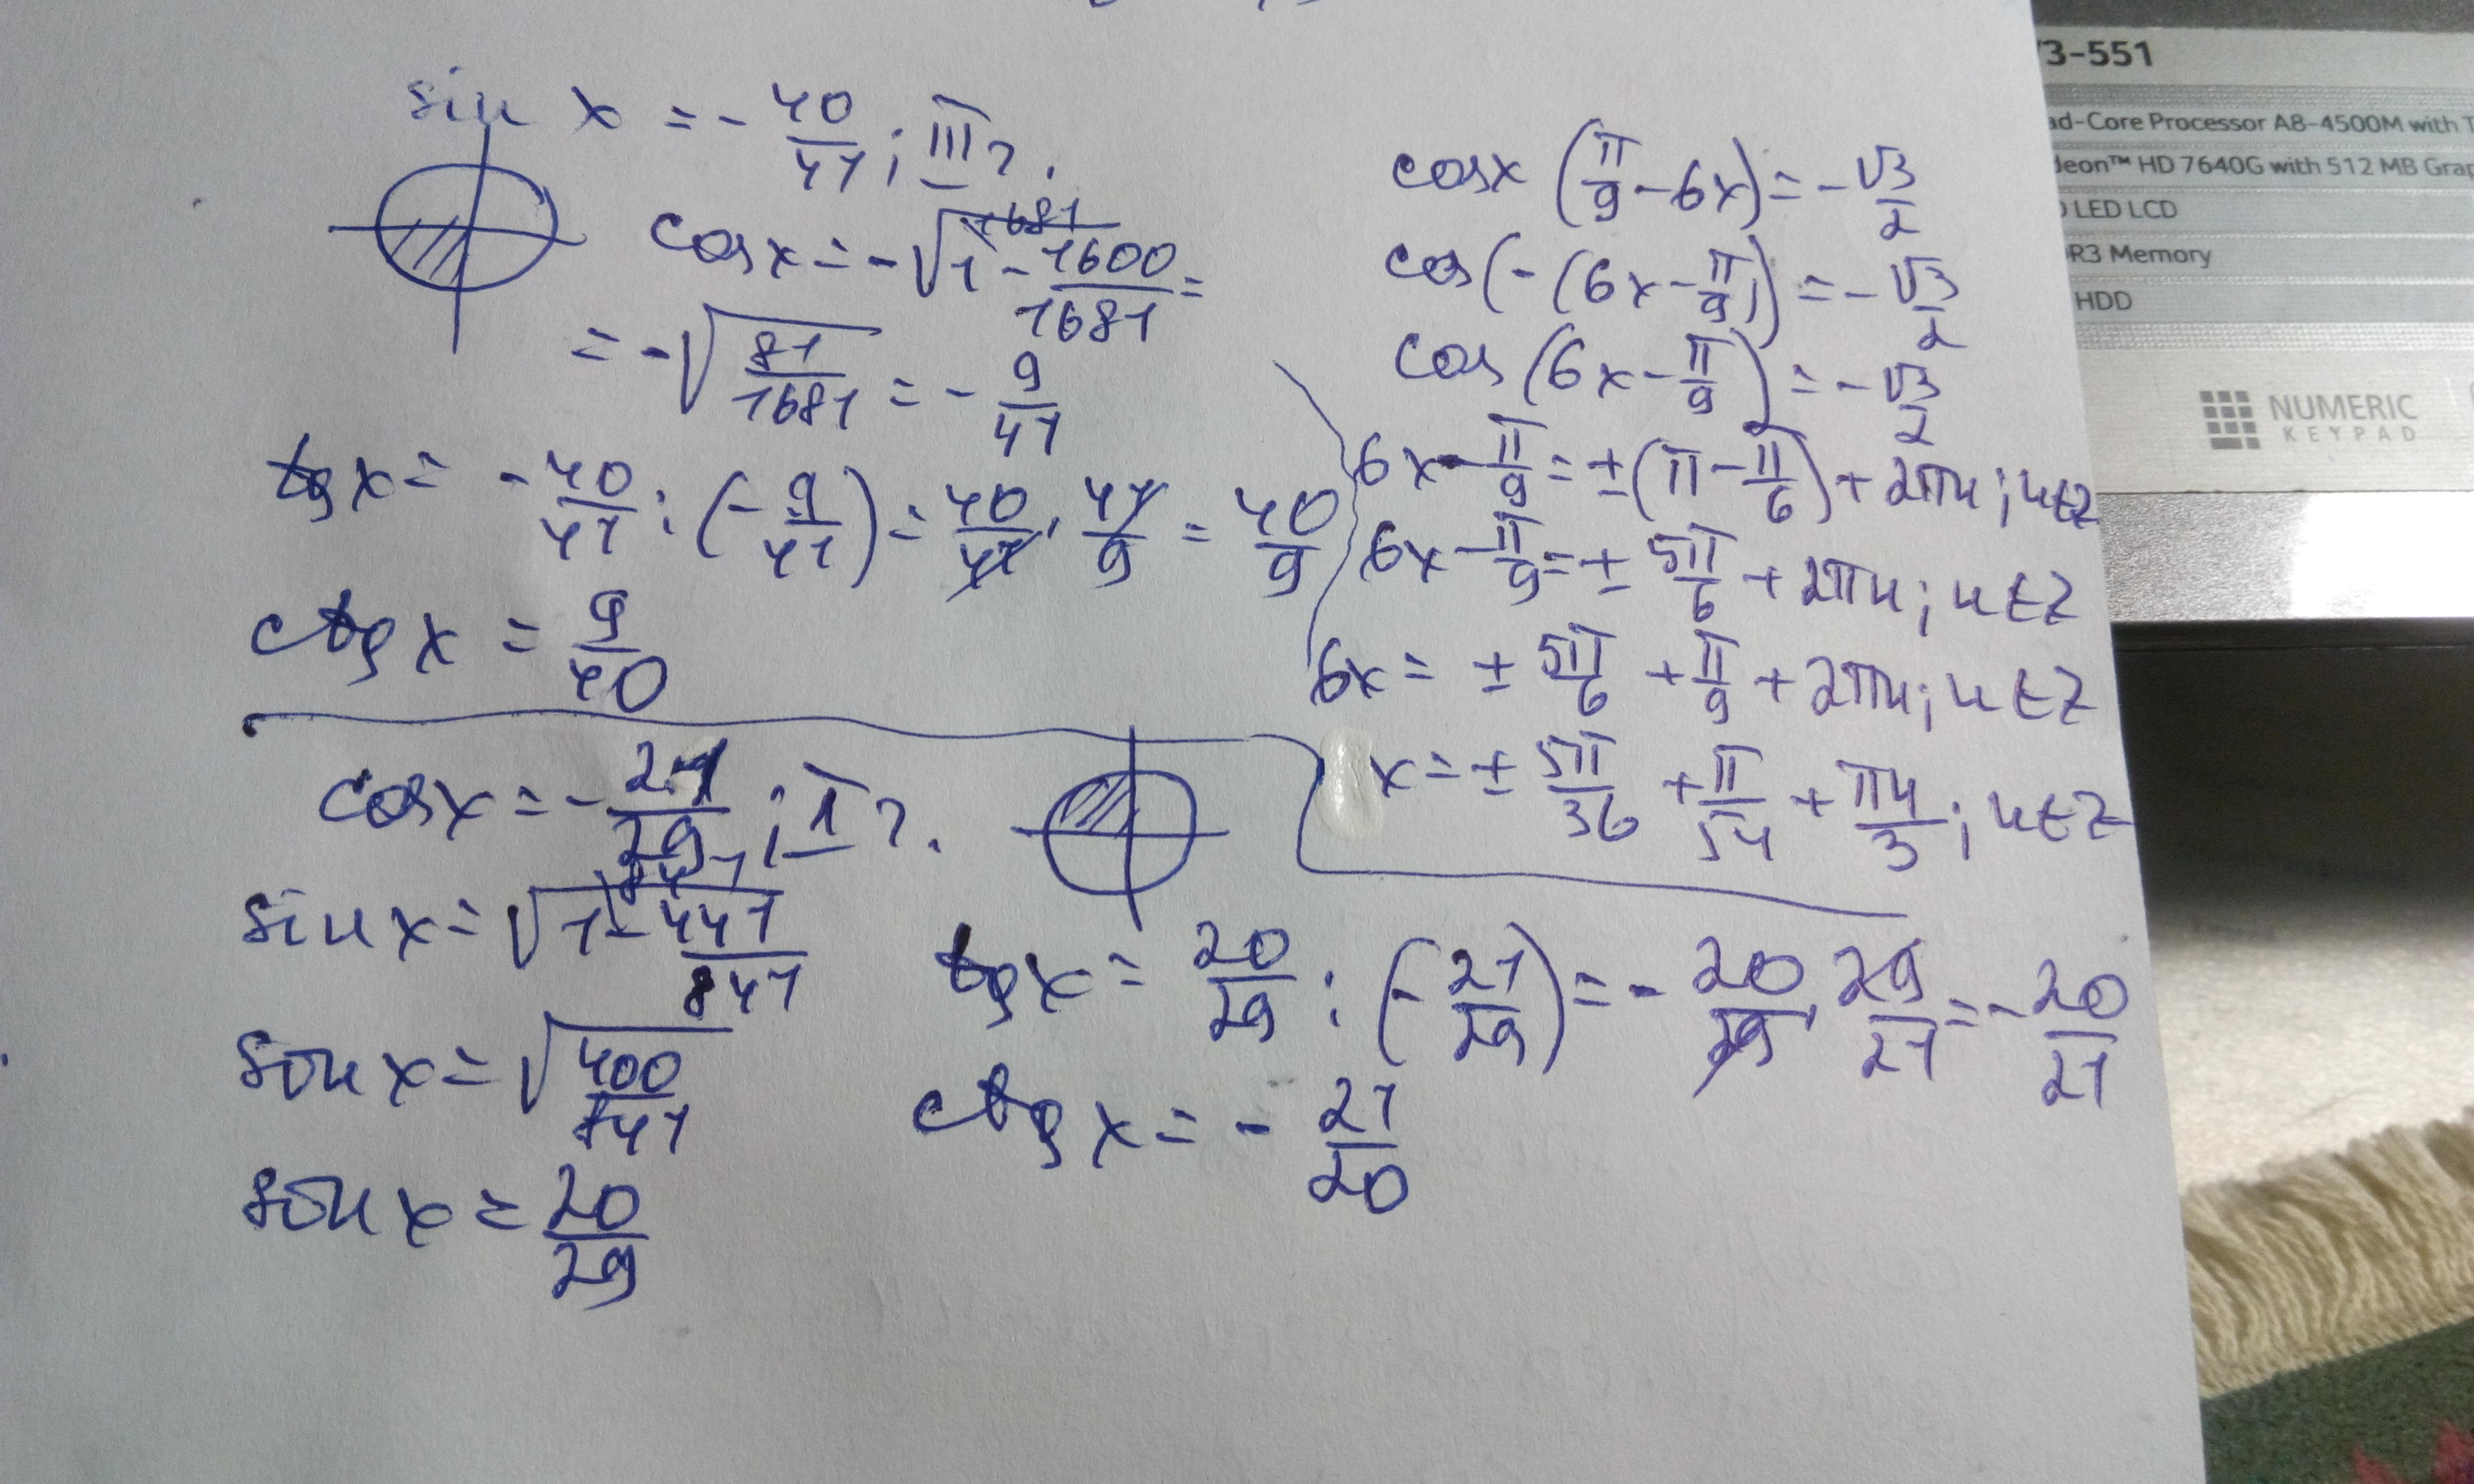 sin x = - 40/41; III ч.
cos x = -√(1 - 1600/1681) =
= -√(81/1681) = - 9/41
tg x = - 40/41 : (- 9/41) = 40/41 · 41/9 = 40/9
ctg x = 9/40
cosx (π/9 - 6x) = - √3/2
cos(-(6x - π/9)) = - √3/2
cos(6x - π/9) = - √3/2
6x - π/9 = ±(π - π/6) + 2πn; n∈Z
6x - π/9 = ± 5π/6 + 2πn; n∈Z
6x = ± 5π/6 + π/9 + 2πn; n∈Z
x = ± 5π/36 + π/54 + πn/3; n∈Z
cos x = - 21/29;
sin x = √(1 - 441/841)
sin x = √(400/841)
sin x = 20/29
tg x = 20/29 : (- 21/29) = - 20/29 · 29/21 = - 20/21
ctg x = - 21/20
V3-551
ad-Core Processor A8-4500M with T
deon™ HD 7640G with 512 MB Grap
D LED LCD
R3 Memory
HDD
NUMERIC
KEYPAD